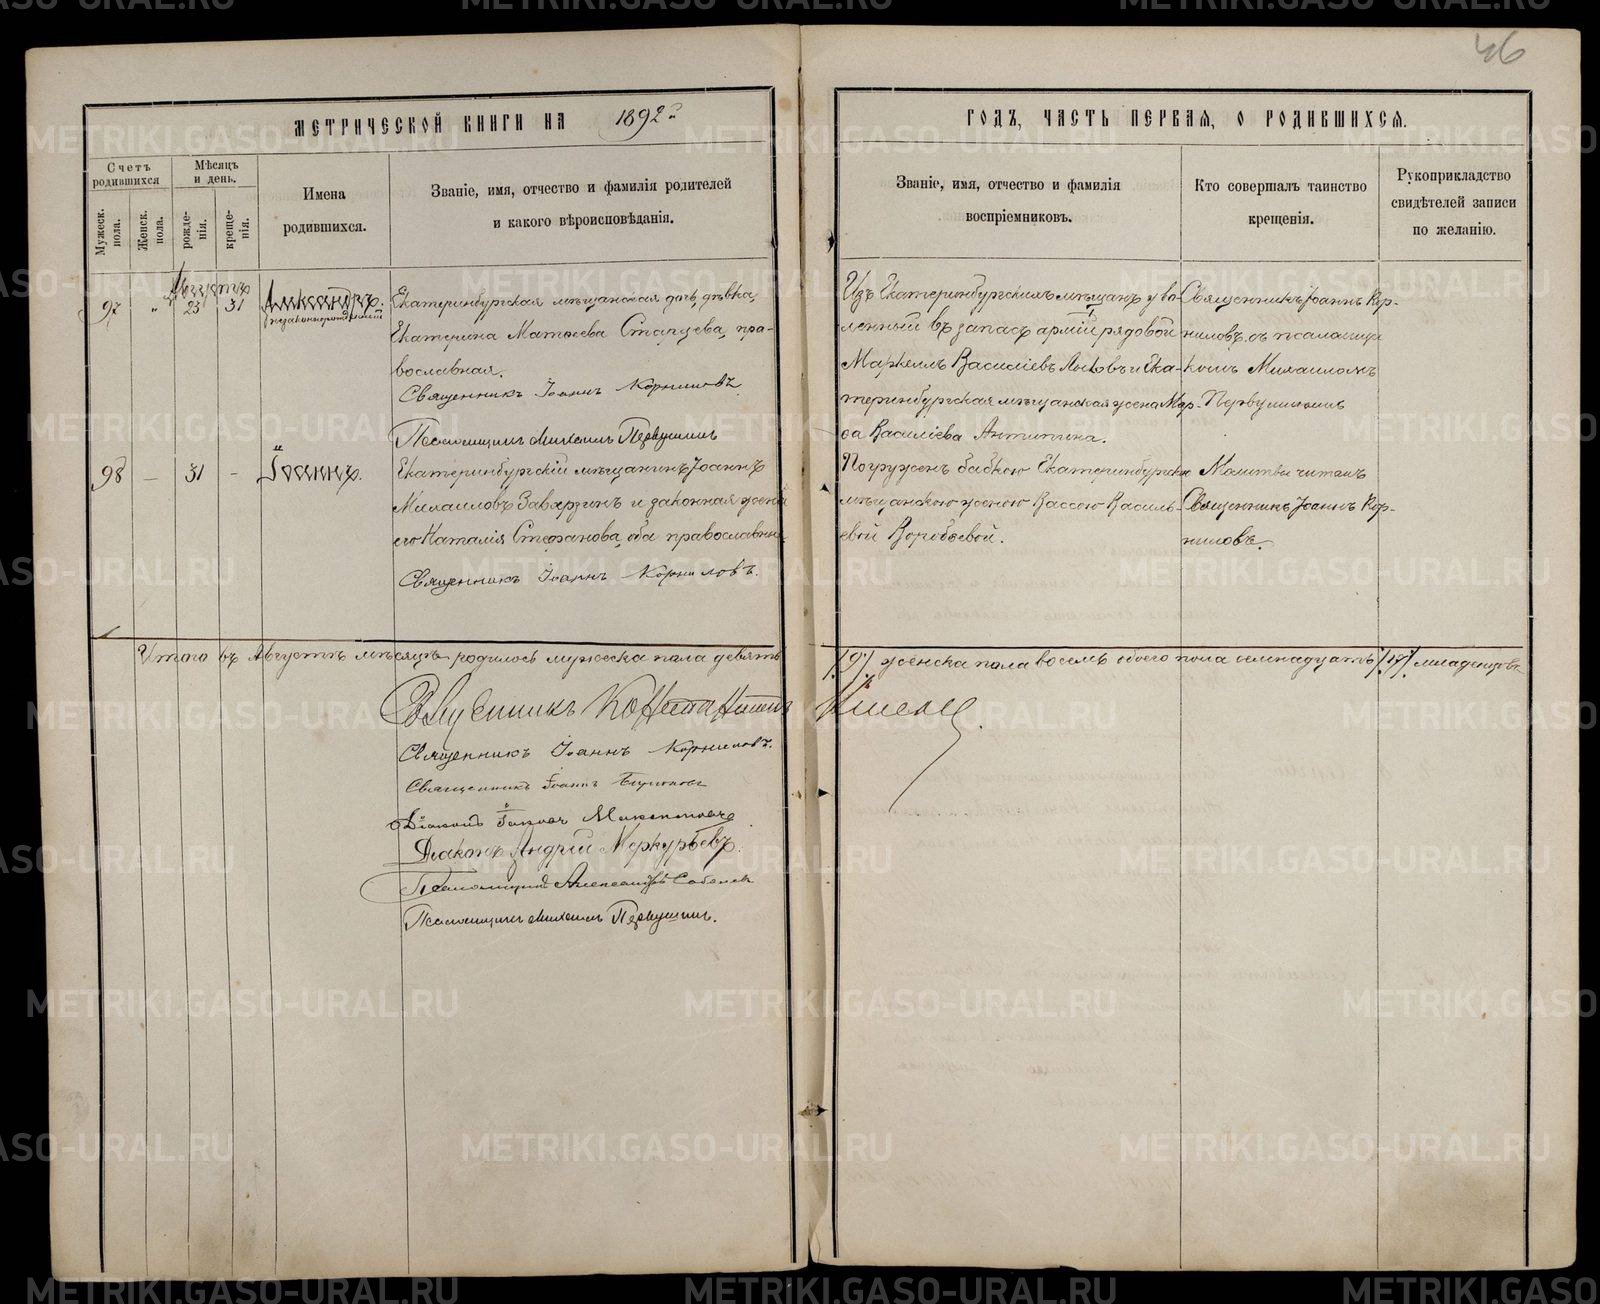 46
МЕТРИЧЕСКОЙ КНИГИ НА 1892 г.
ГОДЪ, ЧАСТЬ ПЕРВАЯ, О РОДИВШИХСЯ.
Счетъ родившихся
Мужеск. пола.
Женск. пола.
Мѣсяцъ и день.
рожде-нія.
креще-нія.
Имена
родившихся.
Званіе, имя, отчество и фамилія родителей
и какого вѣроисповѣданія.
Званіе, имя, отчество и фамилія
воспріемниковъ.
Кто совершалъ таинство
крещенія.
Рукоприкладство
свидѣтелей записи
по желанію.
Августъ
97 " 23 31 Александръ.
незаконнорожденный
Екатеринбургская мѣщанская дочь, дѣвка,
Екатерина Матѳеева Старцева, пра-
вославная.
Священникъ Іоаннъ Корниловъ
Псаломщикъ Михаилъ Первушинъ
Изъ Екатеринбургскихъ мѣщанъ уво-
ленный въ запасъ арміи рядовой
Маркеллъ Васильевъ и Ека-
теринбургская мѣщанская жена Мар-
ѳа Василіева Антипина.
Священникъ Іоаннъ Кор-
ниловъ съ псаломщи-
комъ Михаиломъ
Первушинымъ
98 — 31 - Іоаннъ.
Екатеринбургскій мѣщанинъ Іоаннъ
Михаиловъ Заварзинъ и законная жена
его Наталія Стефанова, оба православные
Священникъ Іоаннъ Корниловъ.
Погруженъ бабкою Екатеринбургскою
мѣщанскою женою Вассою Василь-
евой Воробьевой.
Молитвы читалъ
Священникъ Іоаннъ Кор-
ниловъ.
Итого въ Августѣ мѣсяцѣ родилось мужеска пола девять /9/ женска пола восемь обоего пола семнадцать /17/ младенцевъ
Священникъ Іоаннъ Корниловъ.
Священникъ Іоаннъ
Діаконъ
Діаконъ Андрей Меркурьевъ.
Псаломщикъ Александръ
Псаломщикъ Михаилъ Первушинъ.
METRIKI.GASO-URAL.RU